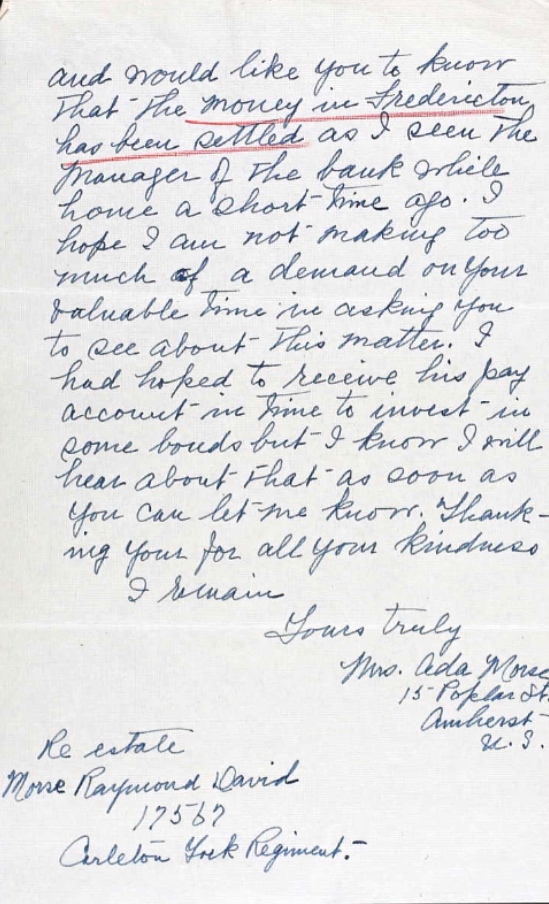 and would like you to know
that the money in Fredericton
has been settled as I seen the
manager of the bank while
home a short time ago. I
hope I am not making too
much of a demand on your
valuable time in asking you
to see about this matter. I
had hoped to receive his pay
account in time to invest in
some bonds but I know I will
hear about that as soon as
you can let me know. Thank-
ing your for all your kindness
I remain
Yours truly
Mrs. Ada Morse
15 Poplar St.
Amherst
N. S.
Re estate
Morse Raymond David
17567
Carleton York Regiment.-